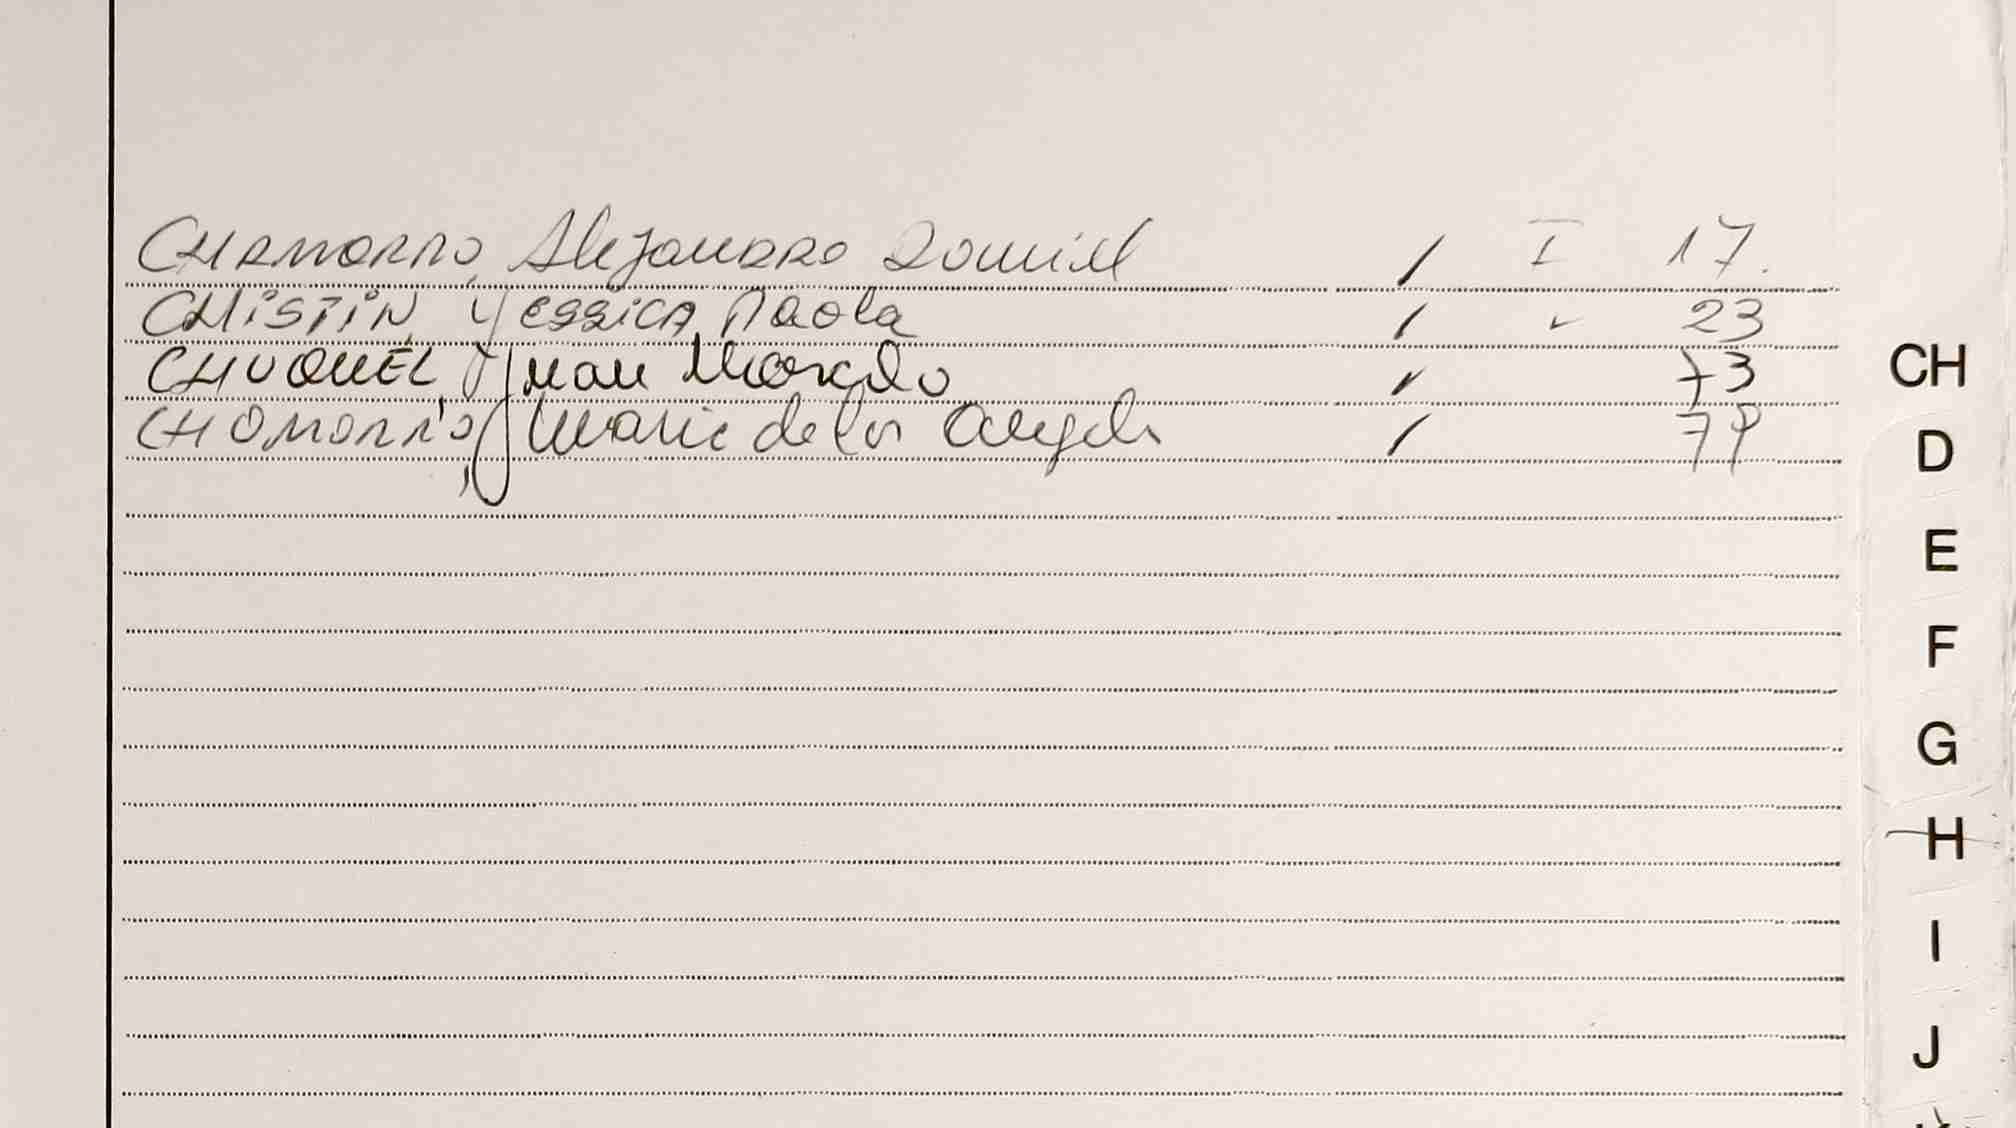 CHAMORRO, Alejandro Daniel / I 17.
CHISTIN, Yessica Paola / 23
CHUQUEL, Juan Marcelo / 73
CHAMORRO, Maria de los Angeles /
CH
D
E
F
G
H
I
J